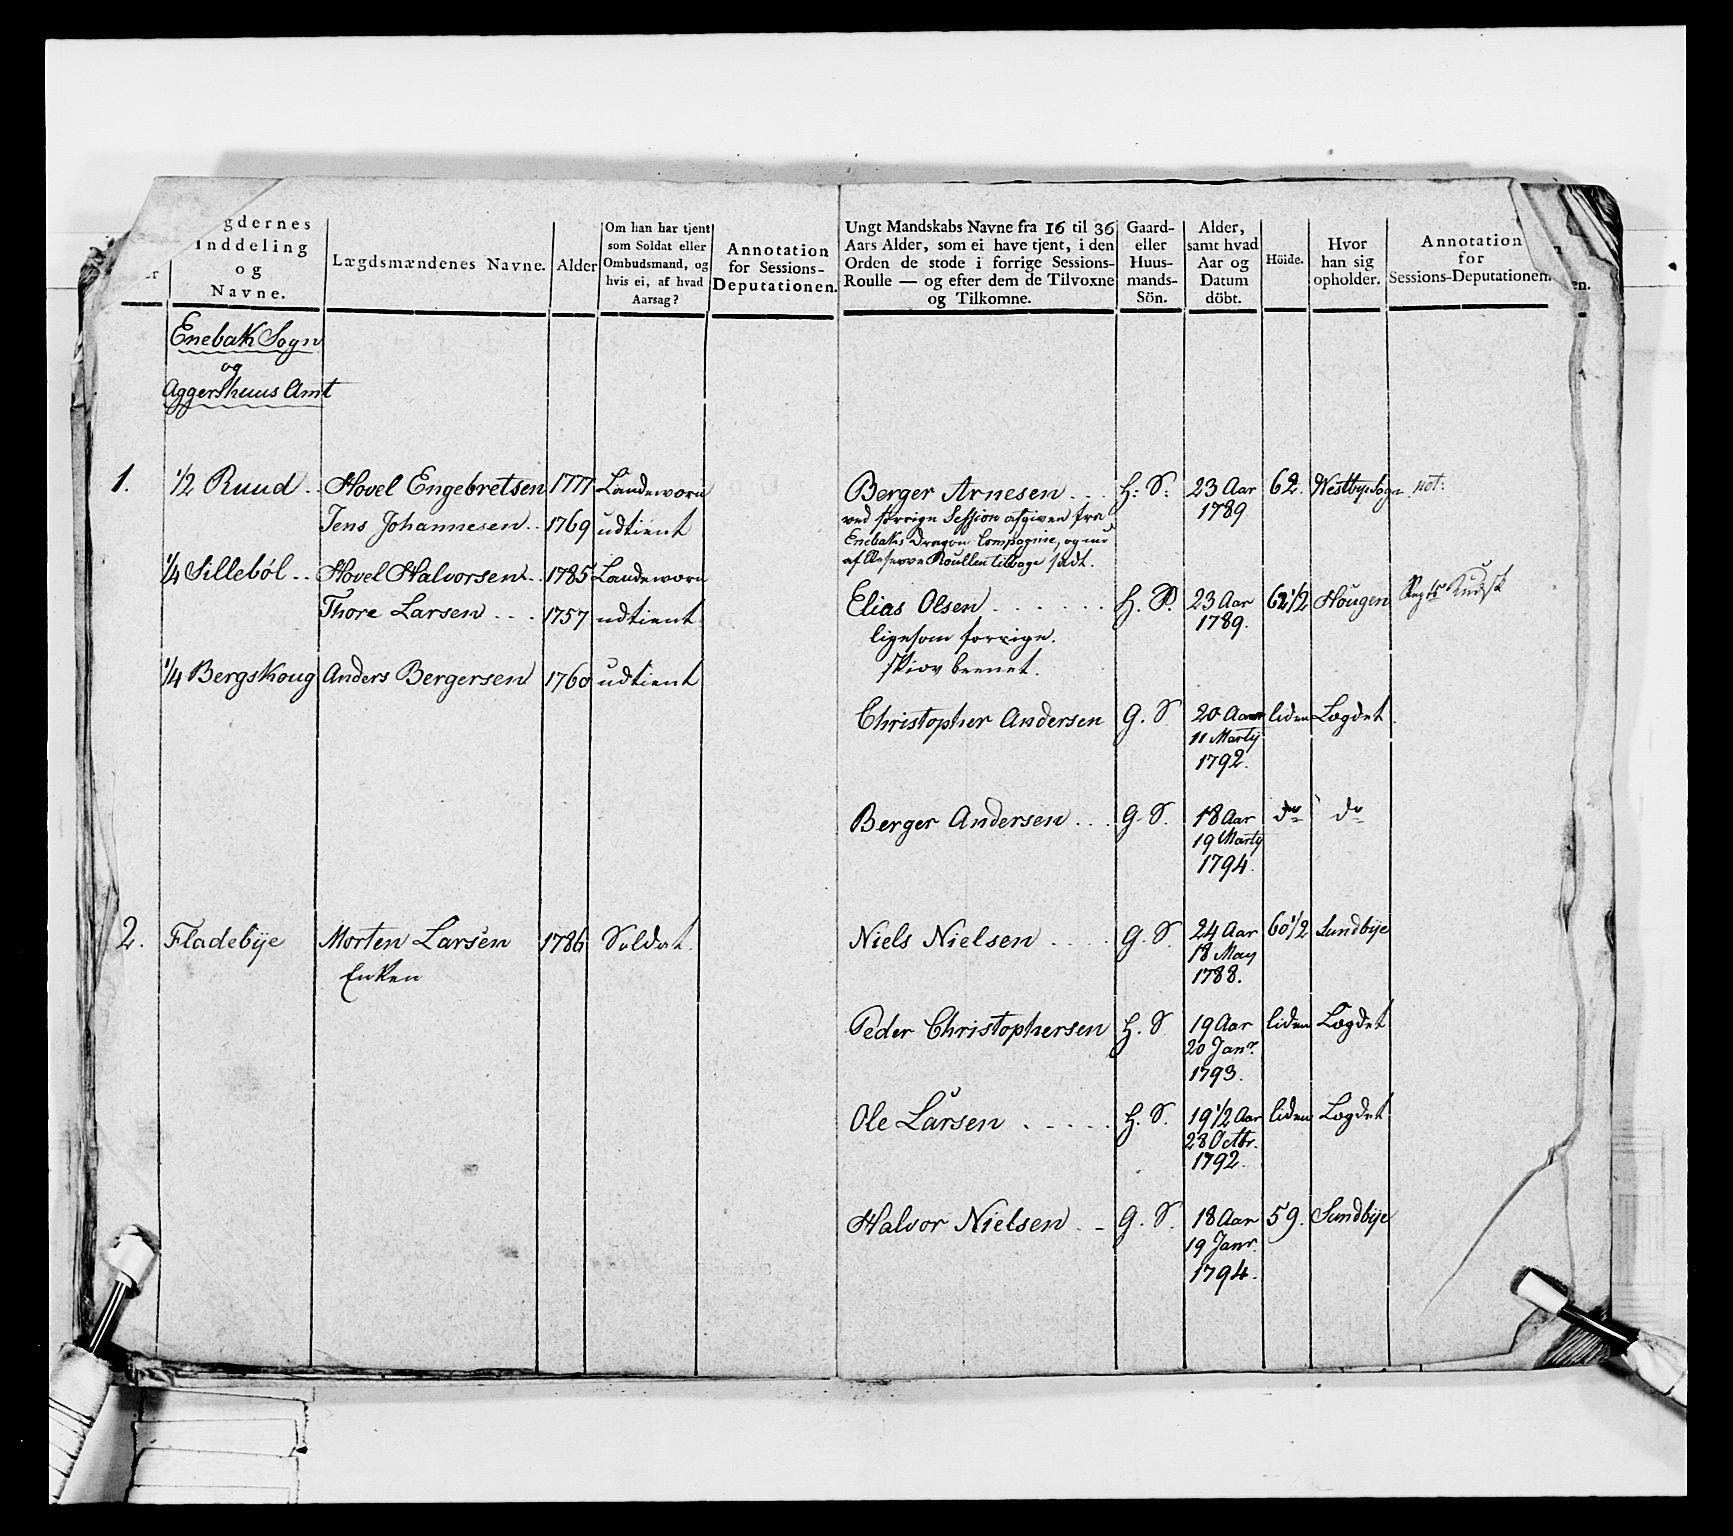 gdernes
Inddeling
og
Navne.
Lægdsmændenes Navne.
Alder
Om han har tjent
som Soldat eller
Ombudsmand, og
hvis ei, af hvad
Aarsag?
Annotation
for Sessions-
Deputationen.
Ungt Mandskabs Navne fra 16 til 36
Aars Alder, som ei have tjent, i den
Orden de stode i forrige Sessions-
Roulle — og efter dem de Tilvoxne
og Tilkomne.
Gaard-
eller
Huus-
mands-
Sön.
Alder,
samt hvad
Aar og
Datum
döbt.
Höide.
Hvor
han sig
opholder.
Annotation
for
Sessions-Deputationen.
en.
Enebak Sogn
og
Aggershuus Amt
1. 1/2 Ruud .. Hovel Engebretsen 1777 Landeværn
Jens Johannesen .. 1769 udtient
1/4 Sillebøl .. Hovel Halvorsen .. 1785 Landeværn
Thore Larsen ... 1757 udtient
1/4 Bergskoug Anders Bergersen 1760 udtient
2. Fladebÿe Morten Larsen 1786 Soldat.
Enken
Berger Arnesen ... H: S: 23 Aar 62. Westbye Sogn not:
1789
ved forrige Session afgiven fra
Enebaks Dragon Compagnie, og nu
af Reserve Roullen tilbage sadt.
Elias Olsen ...... H. S. 23 Aar 62 1/2 Hougen
1789.
ligesom forrige.
skiov beenet.
Christopher Andersen G. S. 20 Aar liden Lægdet.
11 Martÿ
1792.
Berger Andersen ... G. S. 18 Aar do do
19 Martÿ
1794.
Niels Nielsen .... G. S. 24 Aar 60 1/2 Sundbÿe
18 May
1788.
Peder Christophersen H. S. 19 Aar liden Lægdet
20 Janr.
1793.
Ole Larsen ..... H. S. 19 1/2 Aar liden Lægdet
28 Octbr.
1792.
Halvor Nielsen .. G. S. 18 Aar 59. Sundbÿe
19 Janr.
1794.